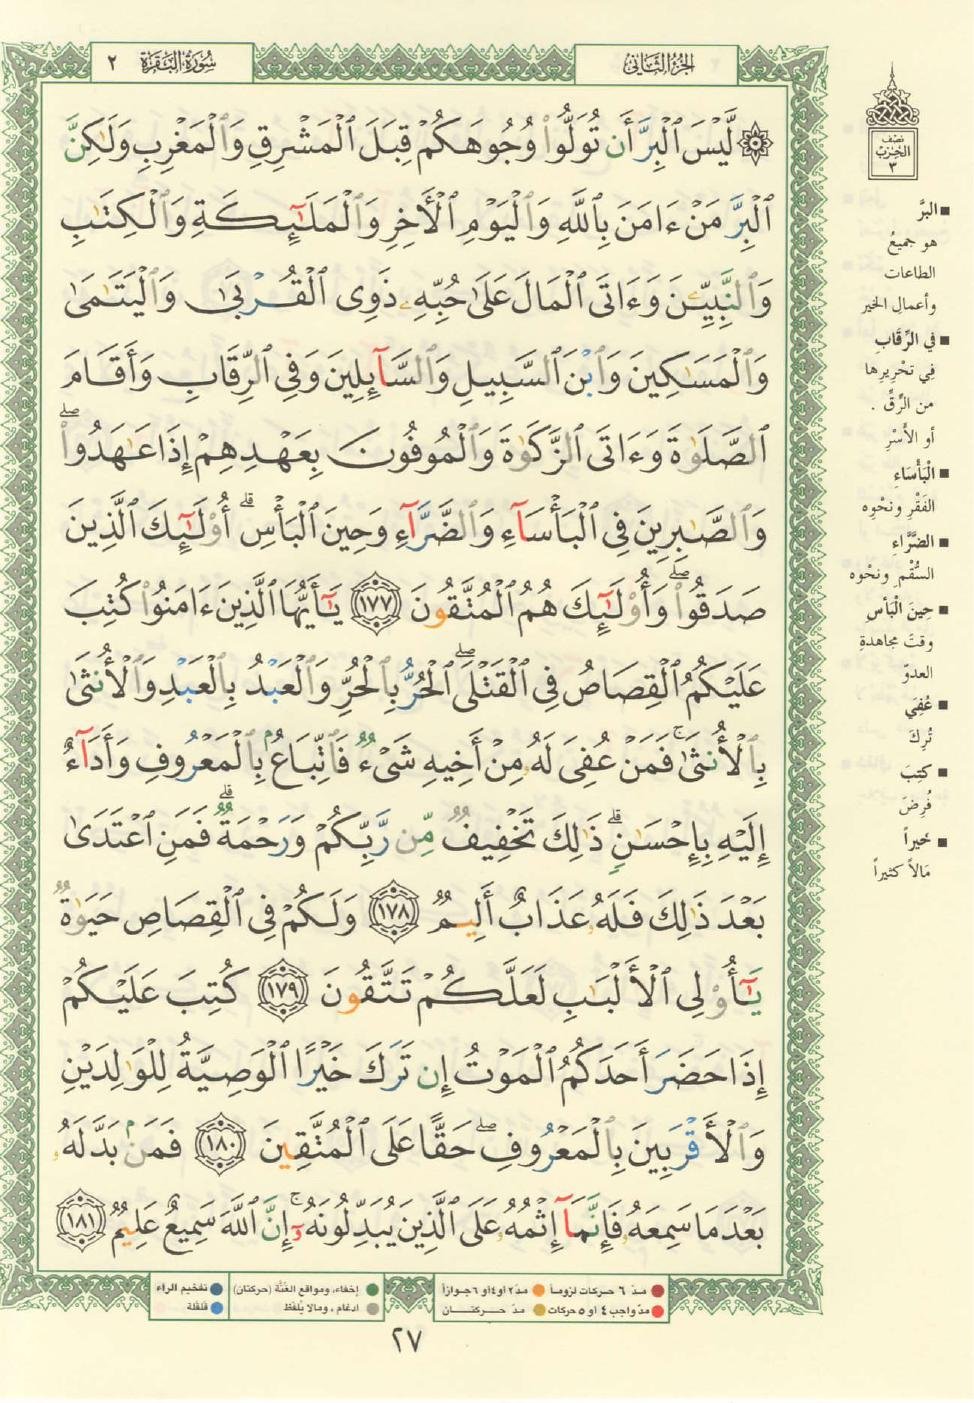 سُورَةُ البَقَرَةِ ٢
الجزء الثاني
۞ لَّيْسَ ٱلْبِرَّ أَن تُوَلُّوا۟ وُجُوهَكُمْ قِبَلَ ٱلْمَشْرِقِ وَٱلْمَغْرِبِ وَلَـٰكِنَّ
ٱلْبِرَّ مَنْ ءَامَنَ بِٱللَّهِ وَٱلْيَوْمِ ٱلْـَٔاخِرِ وَٱلْمَلَـٰٓئِكَةِ وَٱلْكِتَـٰبِ
وَٱلنَّبِيِّـۧنَ وَءَاتَى ٱلْمَالَ عَلَىٰ حُبِّهِۦ ذَوِى ٱلْقُرْبَىٰ وَٱلْيَتَـٰمَىٰ
وَٱلْمَسَـٰكِينَ وَٱبْنَ ٱلسَّبِيلِ وَٱلسَّآئِلِينَ وَفِى ٱلرِّقَابِ وَأَقَامَ
ٱلصَّلَوٰةَ وَءَاتَى ٱلزَّكَوٰةَ وَٱلْمُوفُونَ بِعَهْدِهِمْ إِذَا عَـٰهَدُوا۟ۖ
وَٱلصَّـٰبِرِينَ فِى ٱلْبَأْسَآءِ وَٱلضَّرَّآءِ وَحِينَ ٱلْبَأْسِۗ أُو۟لَـٰٓئِكَ ٱلَّذِينَ
صَدَقُوا۟ۖ وَأُو۟لَـٰٓئِكَ هُمُ ٱلْمُتَّقُونَ ﴿١٧٧﴾ يَـٰٓأَيُّهَا ٱلَّذِينَ ءَامَنُوا۟ كُتِبَ
عَلَيْكُمُ ٱلْقِصَاصُ فِى ٱلْقَتْلَىۖ ٱلْحُرُّ بِٱلْحُرِّ وَٱلْعَبْدُ بِٱلْعَبْدِ وَٱلْأُنثَىٰ
بِٱلْأُنثَىٰۚ فَمَنْ عُفِىَ لَهُۥ مِنْ أَخِيهِ شَىْءٌ فَٱتِّبَاعٌۢ بِٱلْمَعْرُوفِ وَأَدَآءٌ
إِلَيْهِ بِإِحْسَـٰنٍۗ ذَٰلِكَ تَخْفِيفٌ مِّن رَّبِّكُمْ وَرَحْمَةٌۗ فَمَنِ ٱعْتَدَىٰ
بَعْدَ ذَٰلِكَ فَلَهُۥ عَذَابٌ أَلِيمٌ ﴿١٧٨﴾ وَلَكُمْ فِى ٱلْقِصَاصِ حَيَوٰةٌ
يَـٰٓأُو۟لِى ٱلْأَلْبَـٰبِ لَعَلَّكُمْ تَتَّقُونَ ﴿١٧٩﴾ كُتِبَ عَلَيْكُمْ
إِذَا حَضَرَ أَحَدَكُمُ ٱلْمَوْتُ إِن تَرَكَ خَيْرًا ٱلْوَصِيَّةُ لِلْوَٰلِدَيْنِ
وَٱلْأَقْرَبِينَ بِٱلْمَعْرُوفِۖ حَقًّا عَلَى ٱلْمُتَّقِينَ ﴿١٨٠﴾ فَمَنۢ بَدَّلَهُۥ
بَعْدَ مَا سَمِعَهُۥ فَإِنَّمَآ إِثْمُهُۥ عَلَى ٱلَّذِينَ يُبَدِّلُونَهُۥٓۚ إِنَّ ٱللَّهَ سَمِيعٌ عَلِيمٌ ﴿١٨١﴾
نصف
الحزب
٣
■ البرَّ
هو جميعُ
الطاعات
وأعمالِ الخير
■ في الرِّقَابِ
فِي تحْرِيرِها
من الرِّقِّ .
أو الأَسْرِ
■ الْبَأْسَاءِ
الفَقْرِ ونحْوِه
■ الضرَّاء
السُّقْمِ ونحْوه
■ حِينَ الْبَأسِ
وقتَ مجاهدةِ
العدوّ
■ عُفِيَ
تُرِكَ
■ كتِبَ
فُرِضَ
■ خَيراً
مَالاً كثيراً
مدّ ٦ حركات لزوماً
مدّ ٢ أو ٤ أو ٦ جوازاً
مدّ واجب ٤ أو ٥ حركات
مدّ حركتــان
إخفاء، ومواقع الغُنَّة (حركتان)
تفخيم الراء
ادغام ، ومالا يُلفظ
قلقلة
٢٧